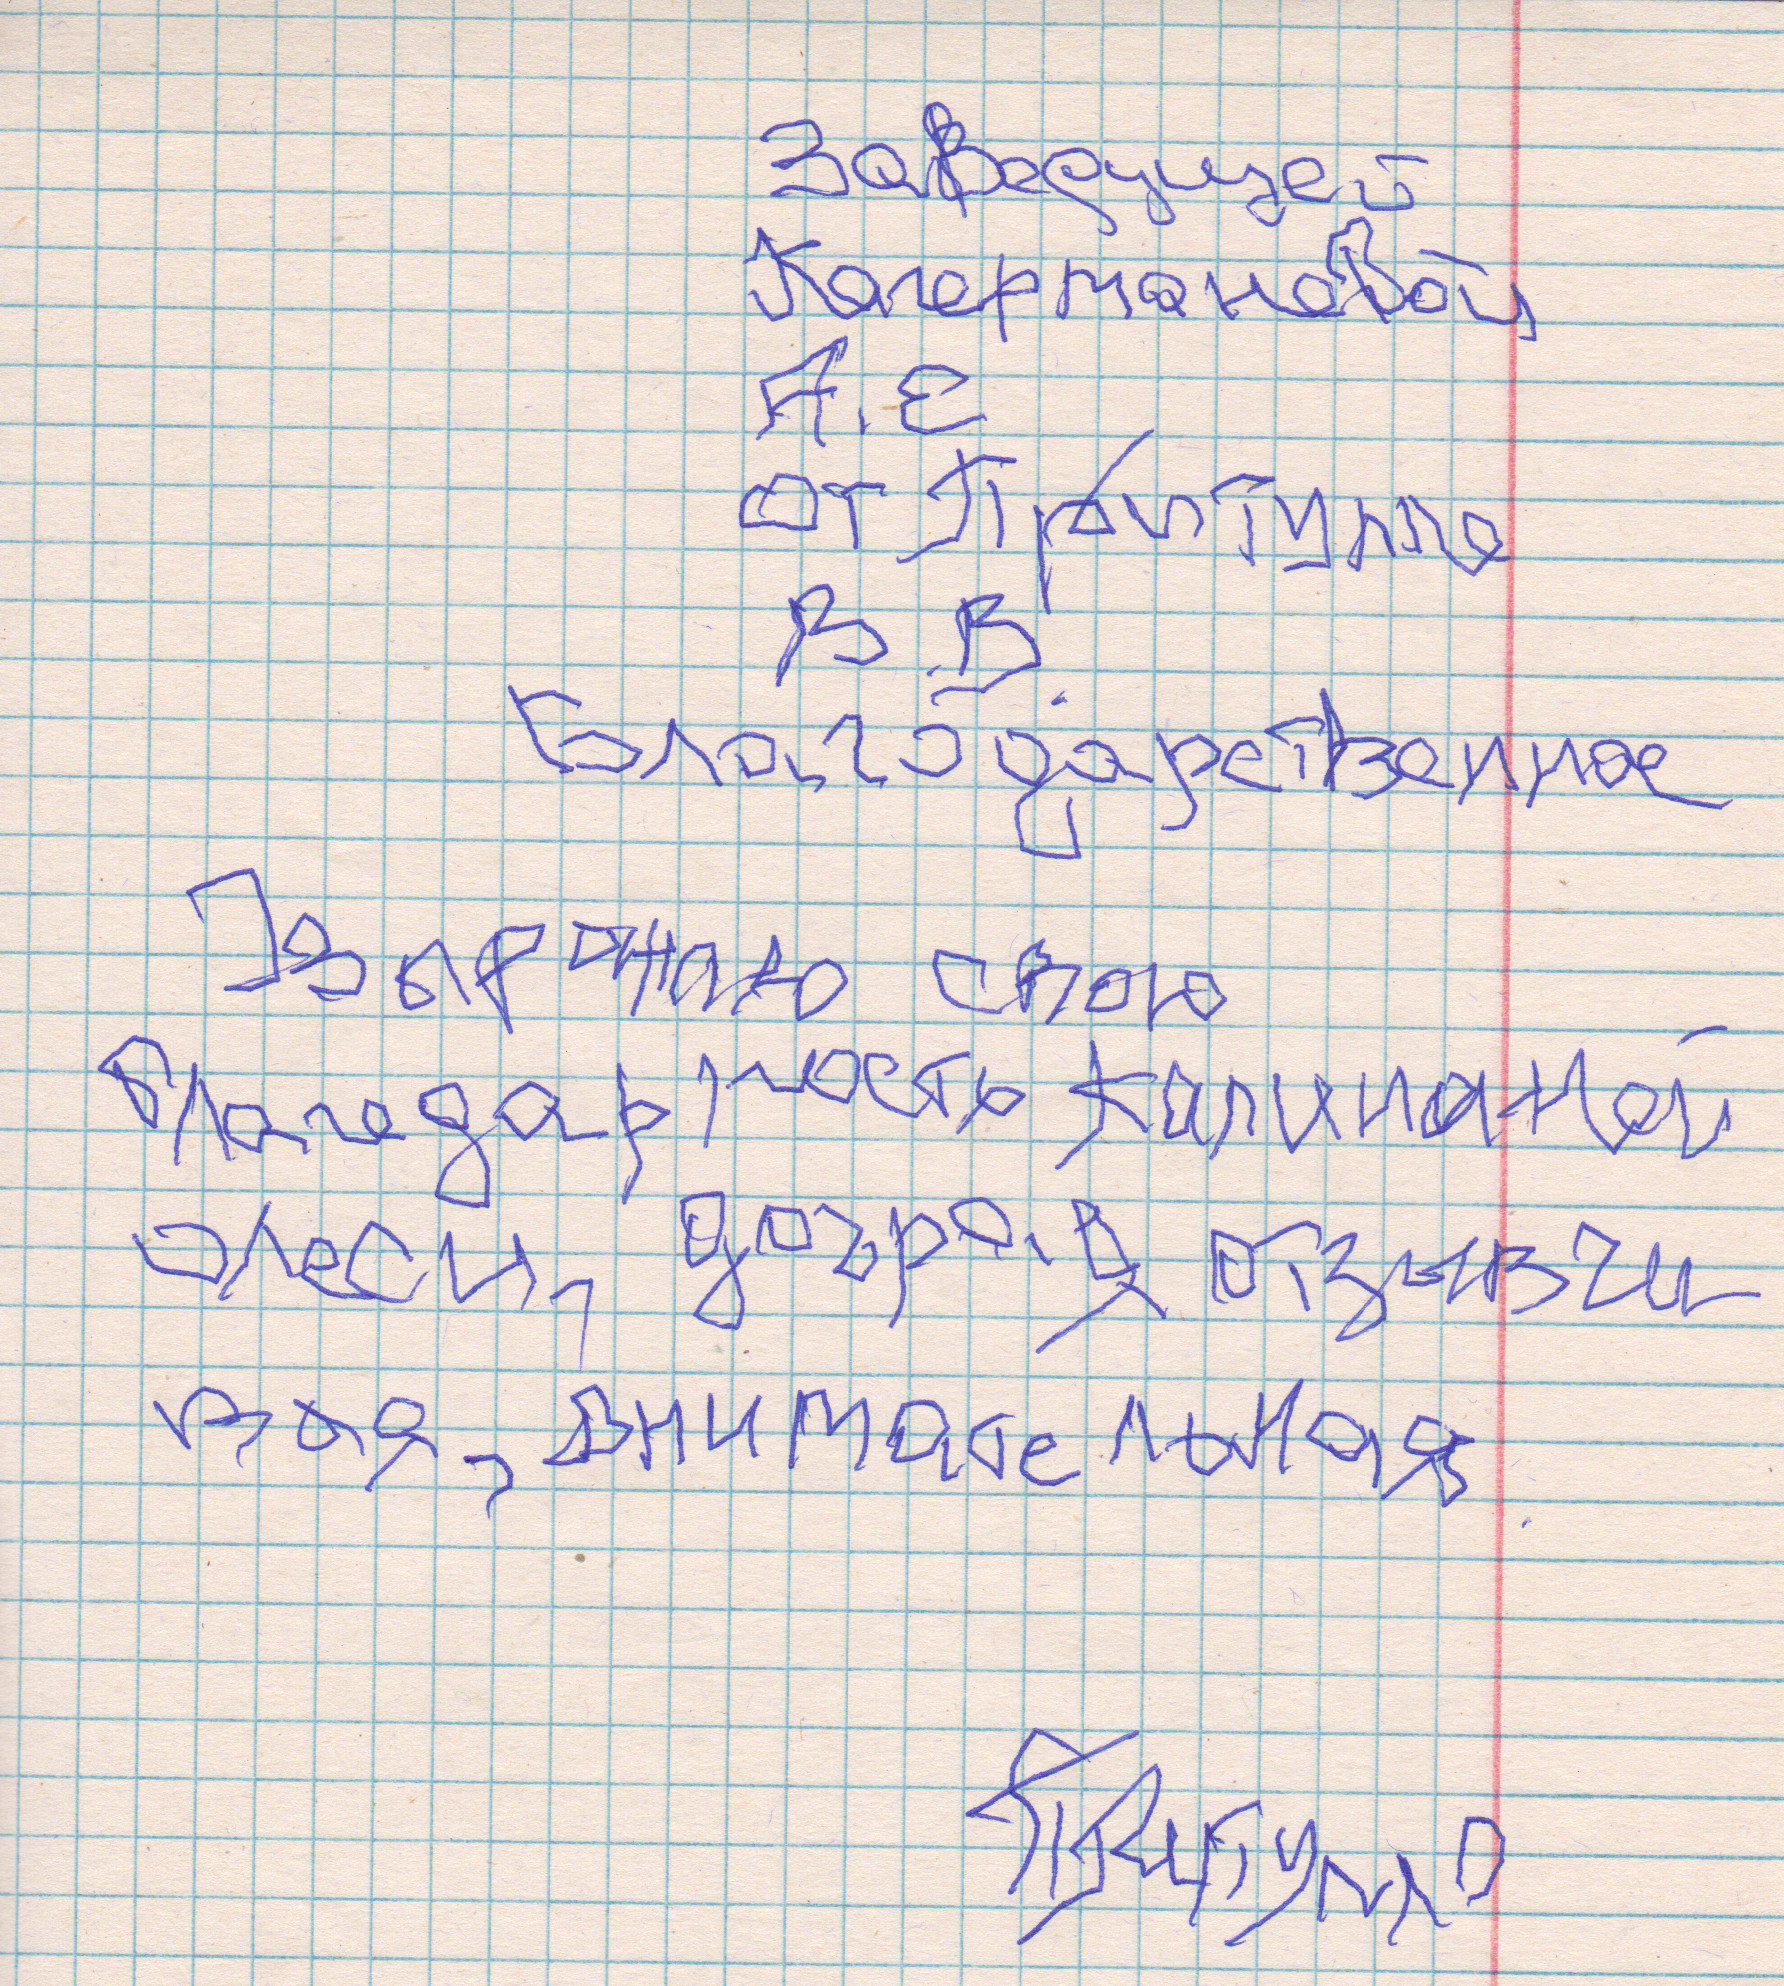 Заведущей
Кагермановой
А.Е
от Притулло
В.В
Благодарственное
Выржаю свою
благодарность Калинаной
Олеси, добрая отзывчи
вая, внимательная
Притулло